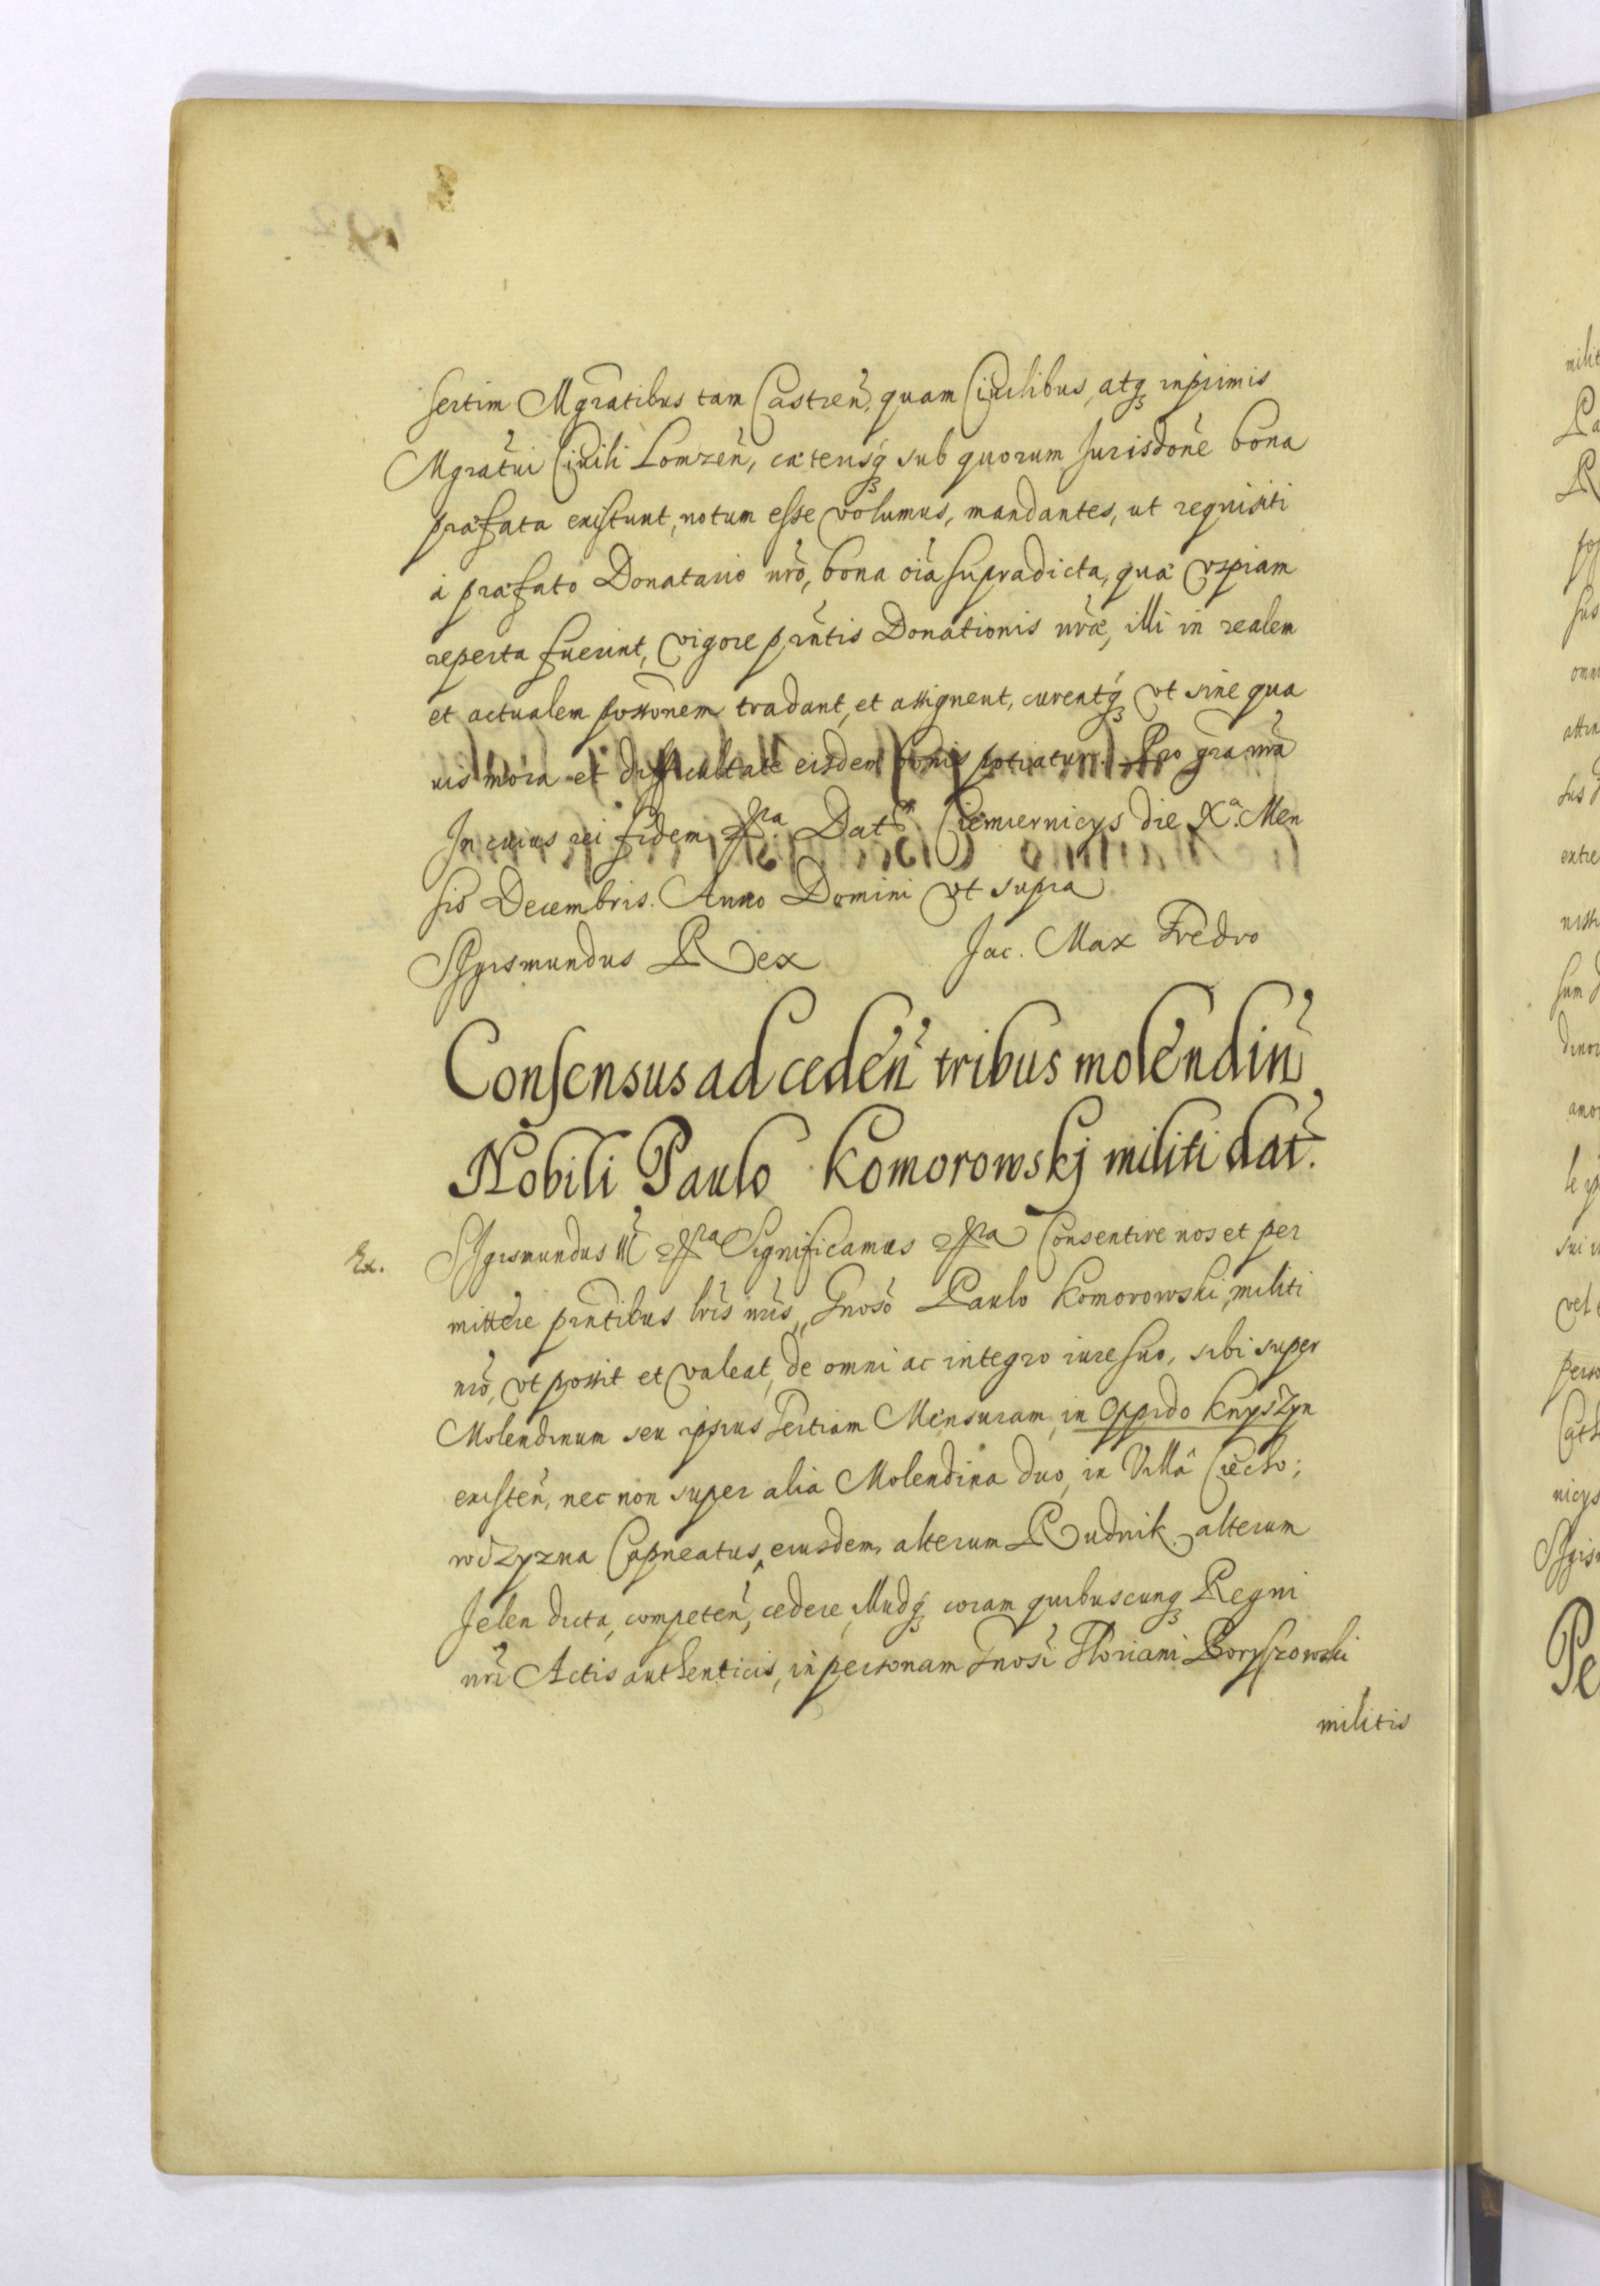 sertim Mgratibus tam Castreñ, quam Ciuilibus, atq inprimis
Mgratui Ciuili Lomzeñ, cæterisq sub quorum Jurisdone bona
præfata existunt, notum esse volumus, mandantes, ut requisiti
à præfato Donatario nro, bona oia supradicta, quæ vspiam
reperta fuerint, vigore pntis Donationis nræ, illi in realem
et actualem possonem tradant, et assignent, curentq vt sine qua
uis mora et difficultate eisdem bonis potiatur. Pro gra nra
In cuius rei fidem &ra Dat Ciemiernicys die Xa. Men
sis Decembris. Anno Domini vt supra
Sigismundus Rex Jac. Max Fredro
Consensus ad cedeñ tribus molendiñ
Nobili Paulo Komorowskj militi dat.
Ex. Sigismundus III &ra Significamus &ra Consentire nos et per
mittere pntibus lris nris, Gnoso Paulo Komorowski, militi
nro, vt possit et valeat, de omni ac integro iure suo, sibi super
Molendinum seu ipsius Tertiam Mensuram, in Oppido Knyszyn
existeñ, nec non super alia Molendina duo, in Villâ Ciecho;
wczyzna Capneatus eiusdem, alterum Rudnik alterum
Jelen dicta, competeñ, cedere, illudq coram quibuscunq Regni
nri Actis authenticis, in personam Gnosi Floriani Boryszowski
militis